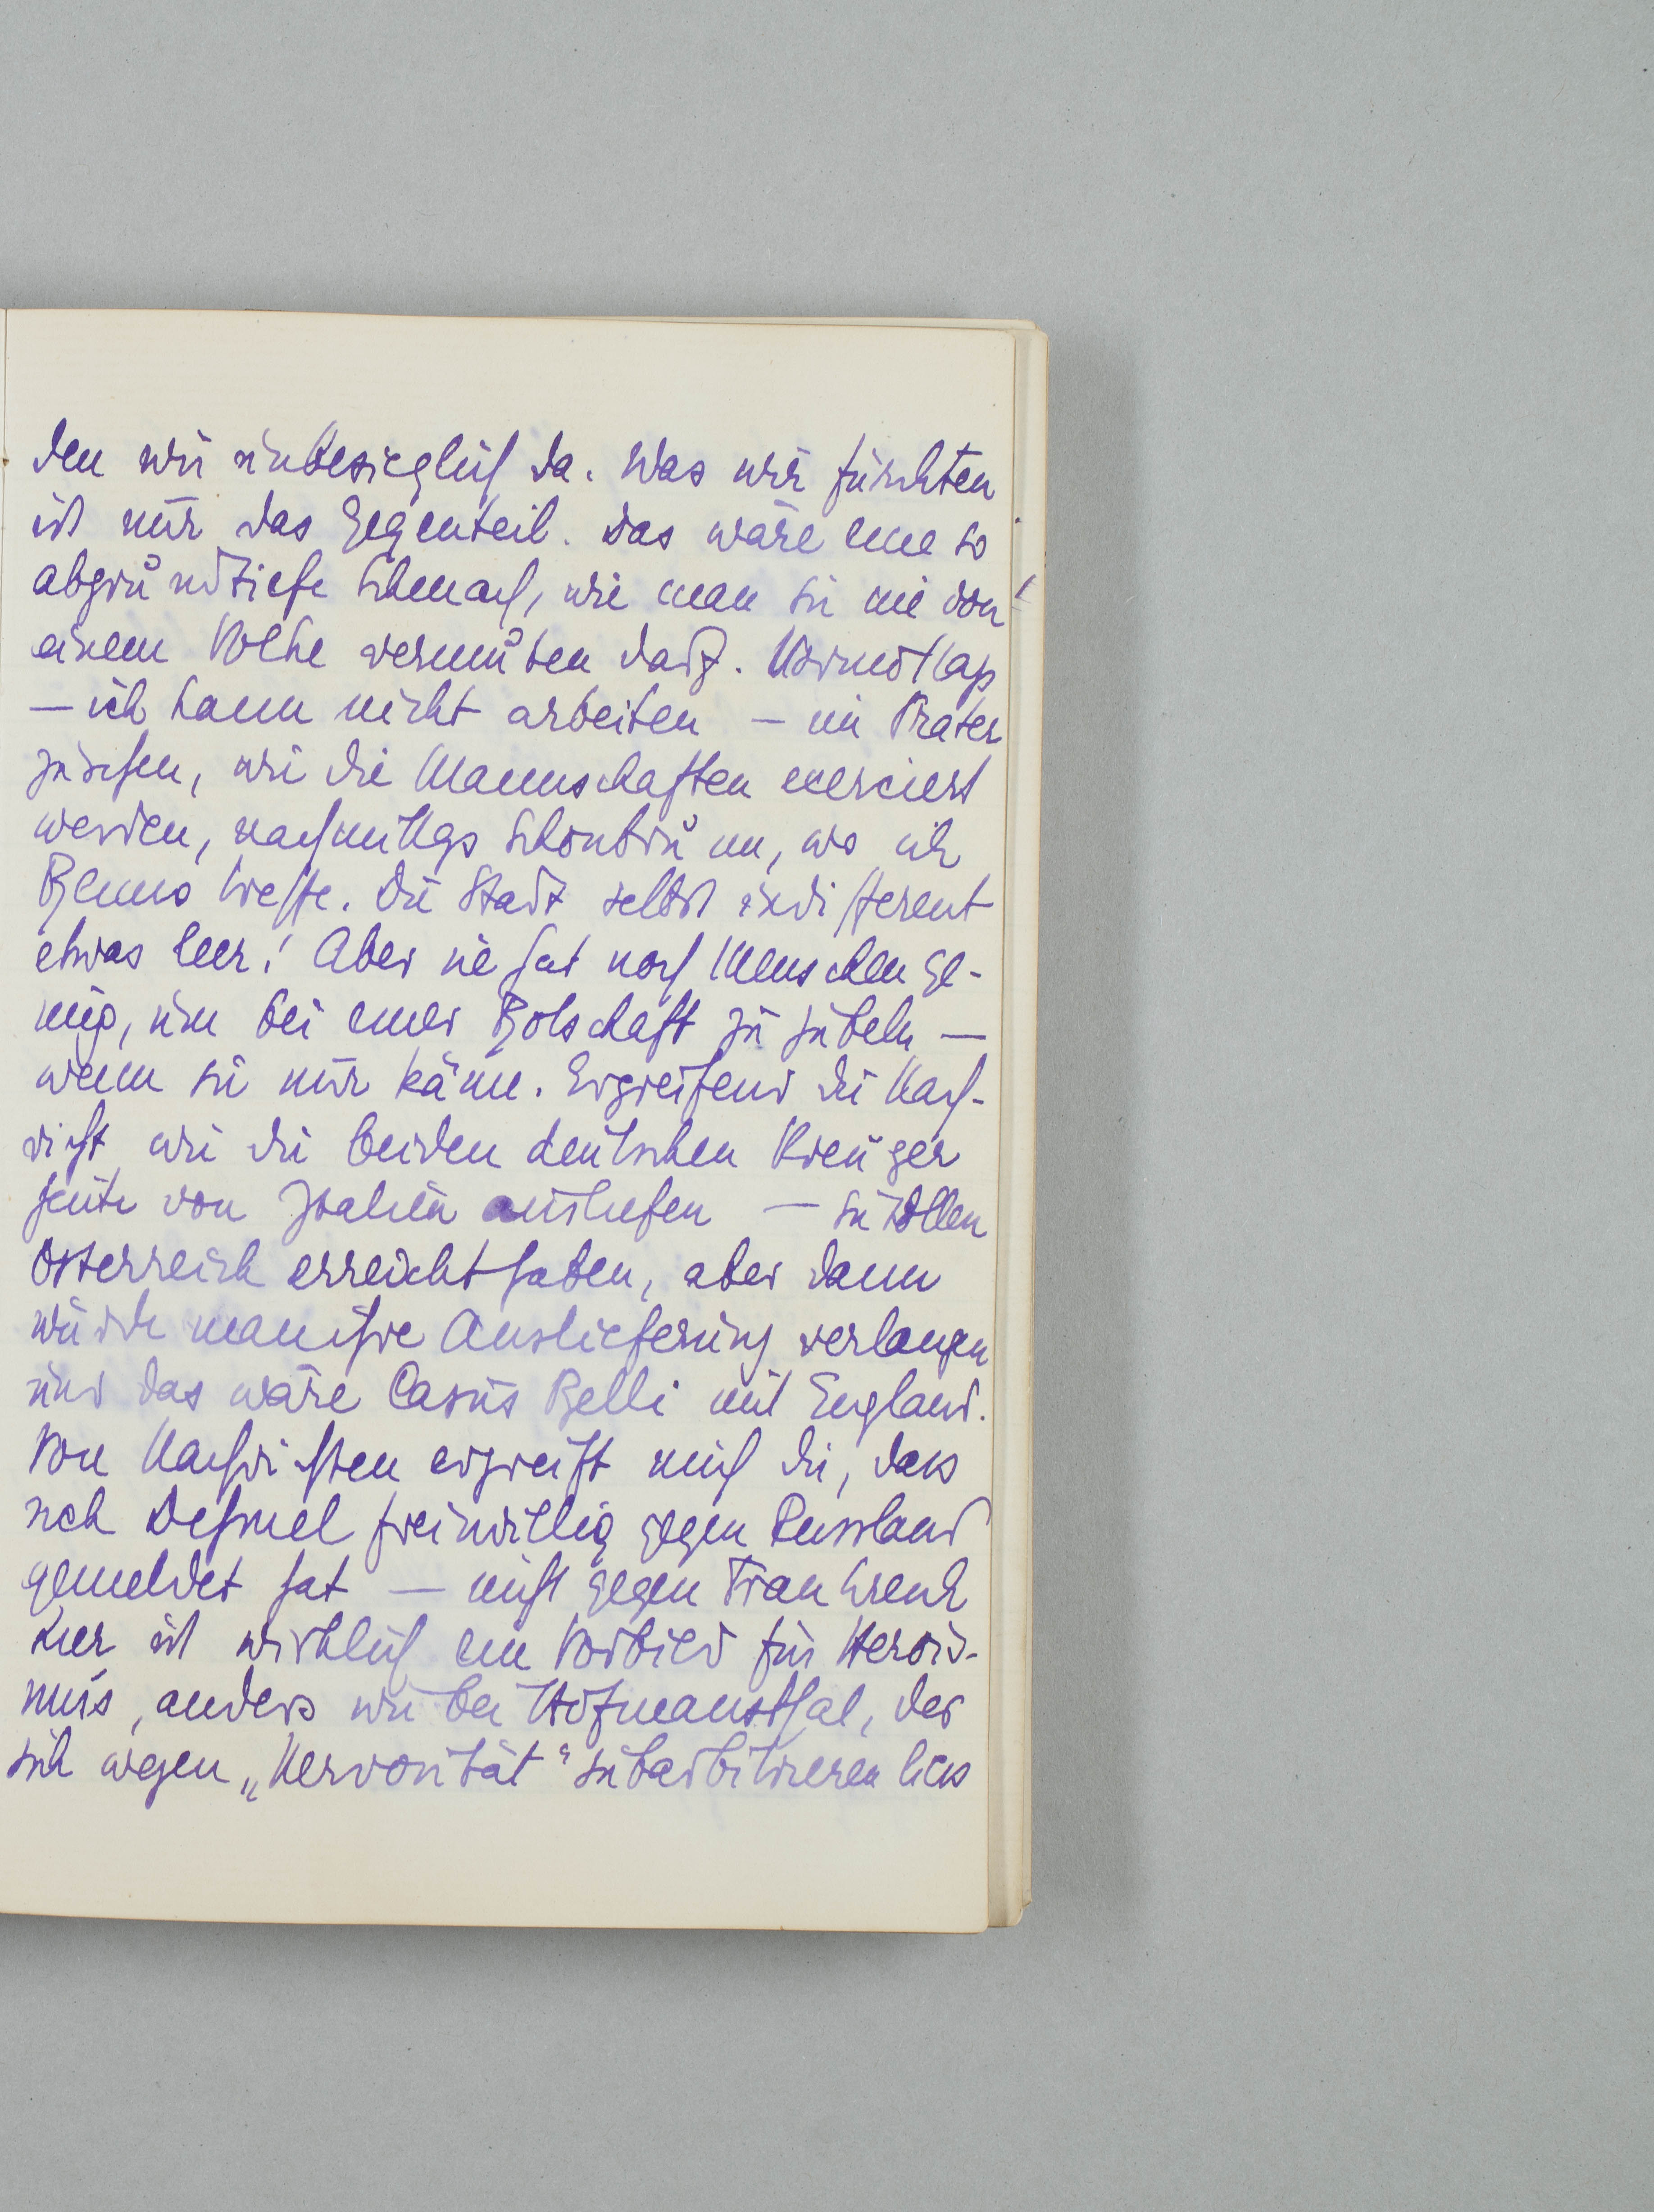 den wir unbesieglich da. Was wir fürchten
ist nur das Gegenteil. Das wäre eine so
abgrundtiefe Schmach, wie man sie nie von
einem Volke vermuten darf. Vormittags
— ich kann nicht arbeiten — im Prater
zusehen, wie die Mannschaften exerciert
werden, nachmittags Schönbrunn, wo ich
Benno treffe. Die Stadt selbst indifferent
etwas leer! Aber sie hat noch Menschen ge-
nug, um bei einer Botschaft zu jubeln —
wenn sie nur käme. Ergreifend die Nach-
richt wie die beiden deutschen Kreuzer
heute von Italien ausliefen — sie sollen
Österreich erreicht haben, aber dann
würde man ihre Auslieferung verlangen
und das wäre Casus Belli mit England.
Von Nachrichten ergreift mich die, dass
sich Dehmel freiwillig gegen Russland
gemeldet hat — nicht gegen Frankreich
hier ist wirklich ein Vorbild für Herois-
mus, anders wie bei Hofmannsthal, der
sich wegen „Nervosität“ superarbitrieren liess